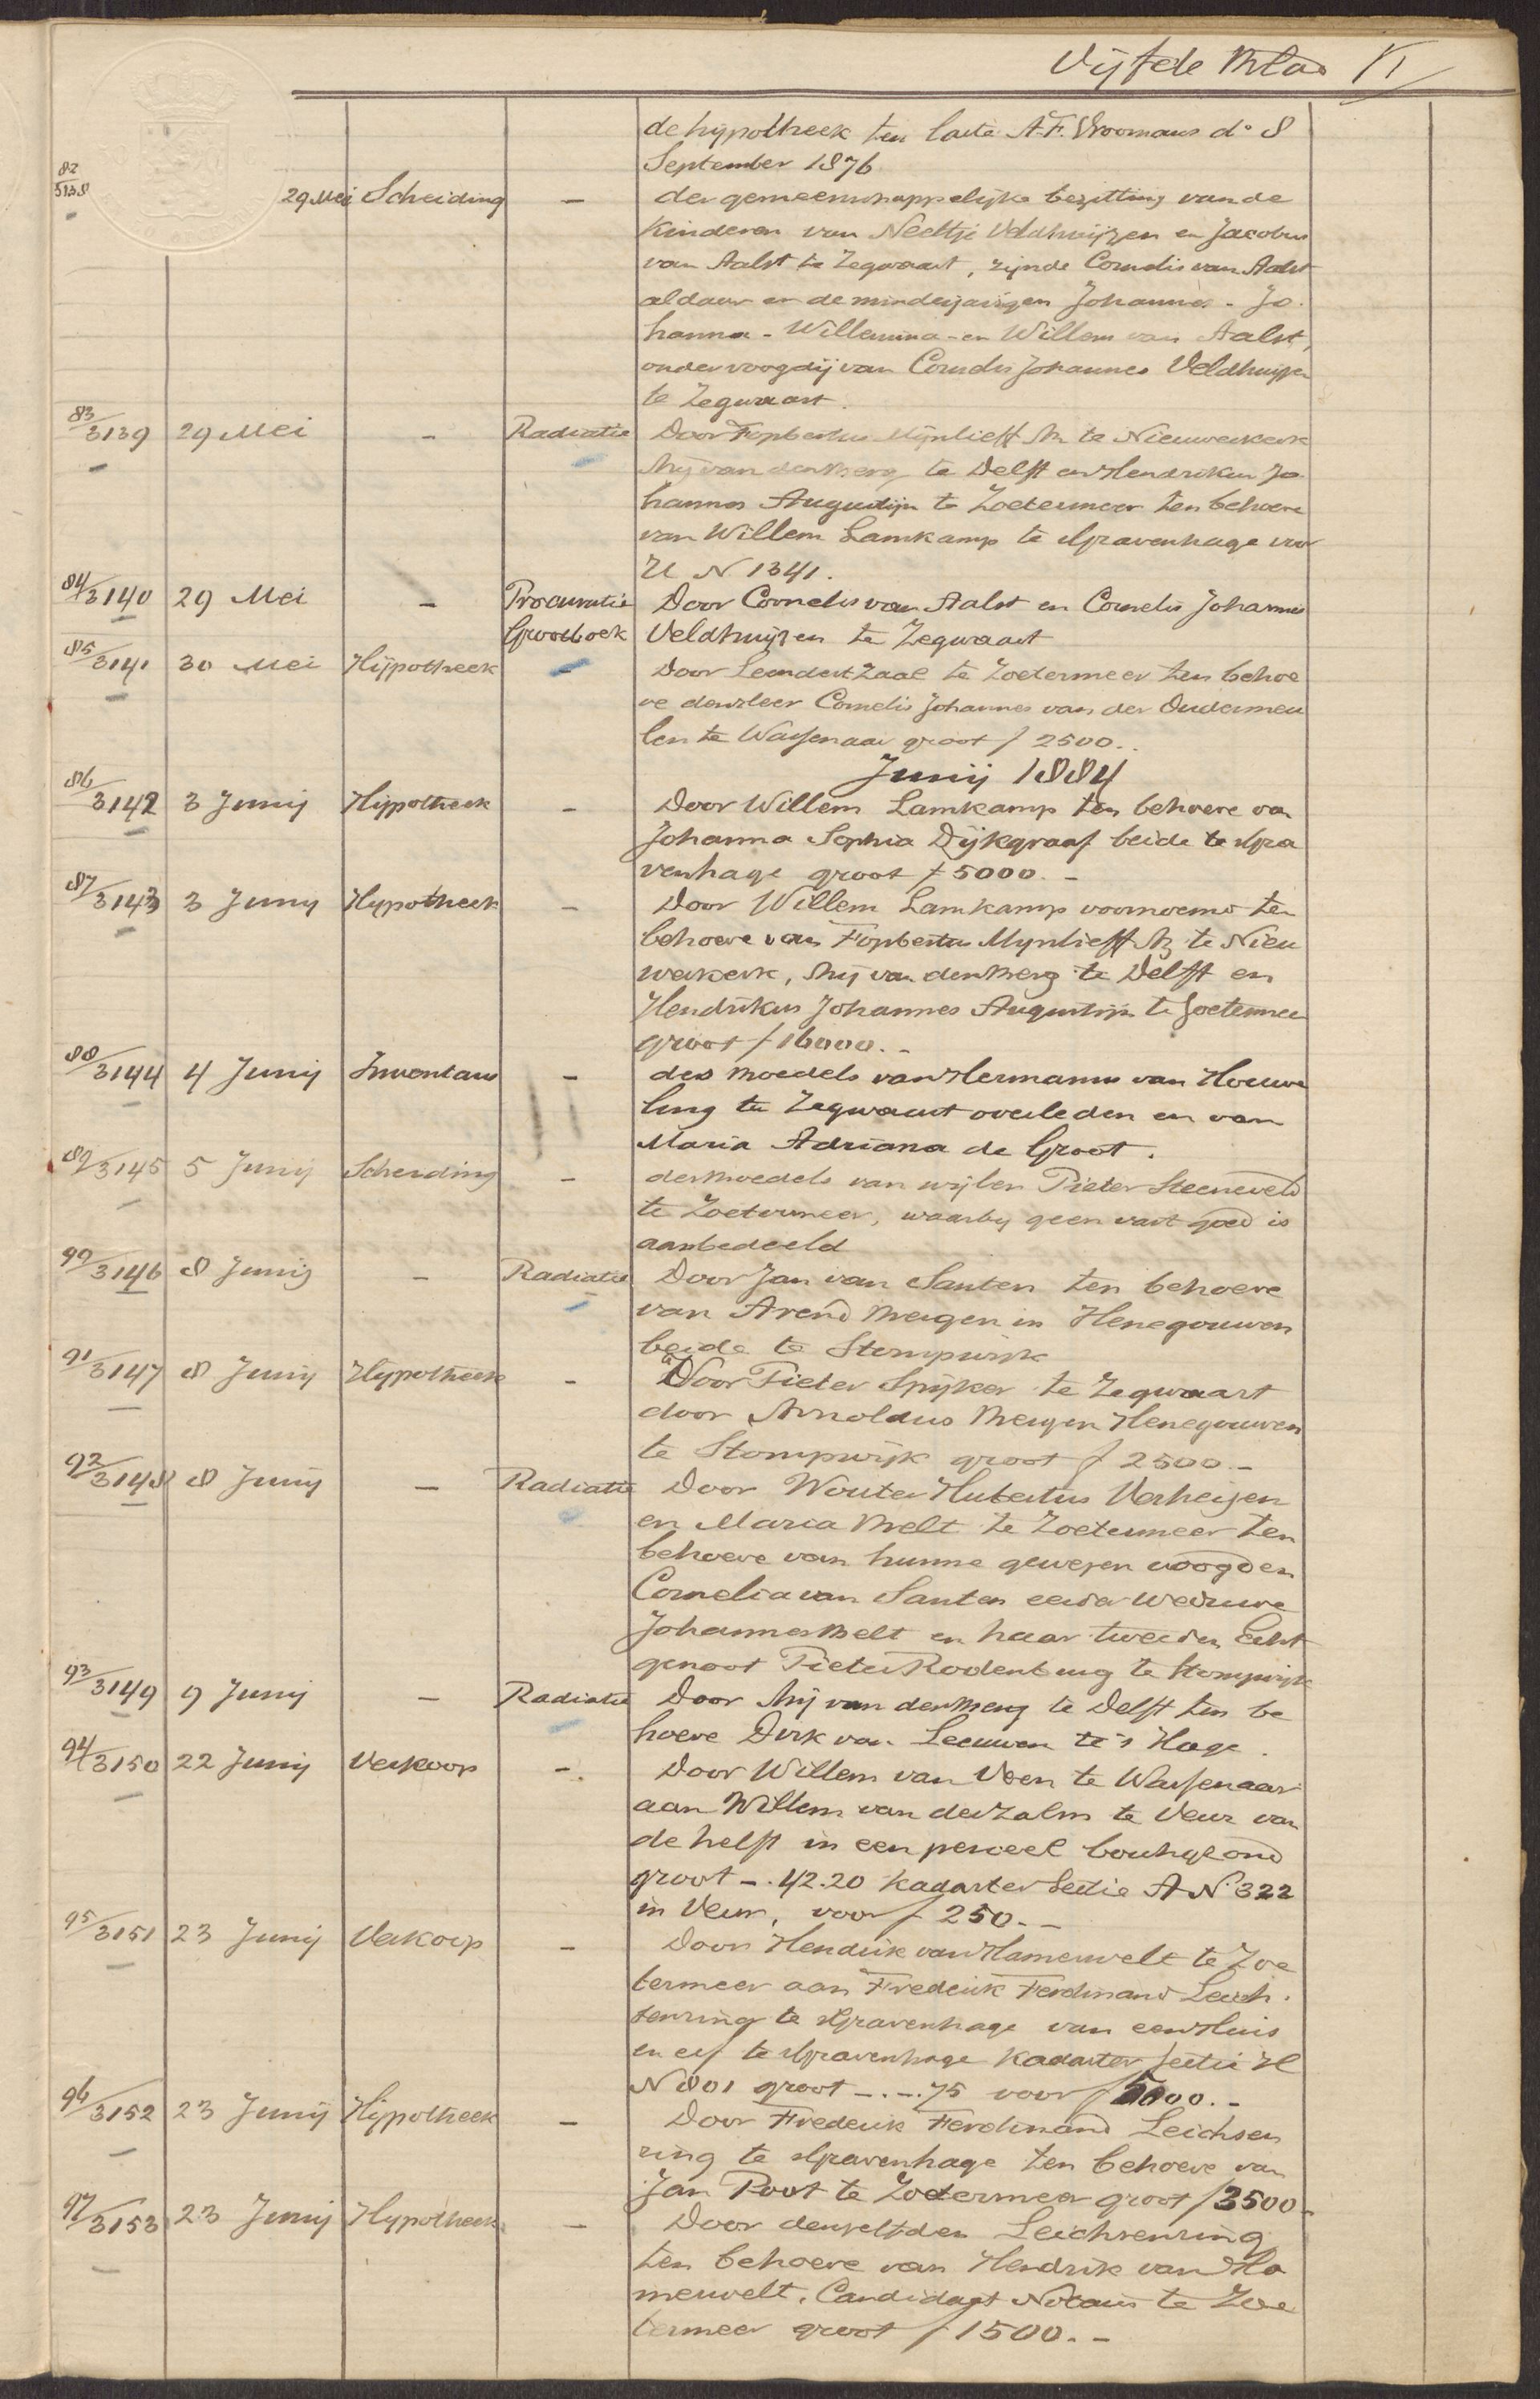 Vijfde Blad
de hypotheek ten laste A.F. Vroomans d° 8
September 1876
82/3138 29 Mei Scheiding — der gemeenschappelijke bezitting van de
Kinderen van Neeltje Veldhuijzen en Jacobus
van Aalst te Zegwaart, zijnde Cornelis van Aalst
aldaar en de minderjarigen Johannes - Jo-
hanna - Willemina - en Willem van Aalst,
onder voogdij van Cornelis Johannes Veldhuijzen
te Zegwaart.
83/3139 29 Mei — Radiatie Door Fopbertus Mijnlieff Az te Nieuwerkerk
Mij van den Berg te Delft en Hendrikus Jo
hannes Augustijn te Zoetermeer ten behoeve
van Willem Lamkamp te sGravenhage voor
N 1341.
84/3140 29 Mei — Procuratie Door Cornelis van Aalst en Cornelis Johannes
Grootboek Veldhuijzen te Zegwaart
85/3141 30 Mei Hijpotheek — Door Leendert Zaal te Zoetermeer ten behoe
ve den Heer Cornelis Johannes van der Oudermeu
len te Wassenaar groot f 2500..
Junij 1884
86/3142 3 Junij Hijpotheek — Door Willem Lamkamp ten behoeve van
Johanna Sophia Dijkgraaf beide te sGra
venhage groot f 5000. -
87/3143 3 Junij Hypotheek — Door Willem Lamkamp voornoemd ten
behoeve van Fopbertus Mynlieff Az te Nieu
werkerk, Mij van den Berg te Delft en
Hendrikus Johannes Augustijn te Zoetermeer
groot f 16000. -
88/3144 4 Junij Inventaris — des Boedels van Hermanus van Houwe
ling te Zegwaart overleden en van
Maria Adriana de Groot.
89/3145 5 Junij Scheiding — des Boedels van wijlen Pieter Steeneveld
te Zoetermeer, waarbij geen vast goed is
aanbedeeld
90/3146 8 Junij — Radiatie Door Jan van Santen ten behoeve
van Arend Bergen in Henegouwen
beide te Stompwijk
91/3147 8 Junij Hypotheek — Door Pieter Spijker te Zegwaart
door Arnoldus Bergen Henegouwen
te Stompwijk groot f 2500 -
92/3148 8 Junij — Radiatie Door Wouter Hubertus Verheijen
en Maria Belt te Zoetermeer ten
behoeve van hunne gewezen voogden
Cornelia van Santen eerder Weduwe
Johannes Belt en haar tweeden Echt
genoot Pieter Rodenburg te Stompwijk
93/3149 9 Junij — Radiatie Door Mij van den Berg te Delft ten be
hoeve Dirk van Leeuwen te 's Hage.
94/3150 22 Junij Verkoop — Door Willem van Veen te Wassenaar
aan Willem van der Zalm te Veur van
de helft in een perceel bouwgrond
groot -. 42.20 Kadaster Sectie A N° 322
in Veur, voor f 250. -
95/3151 23 Junij Verkoop — Door Hendrik van Hamerwelt te Zoe
termeer aan Frederik Ferdinand Leich-
senring te sGravenhage van een Huis
en erf te sGravenhage Kadaster Sectie H
N 801 groot -.-.75 voor f 5000. -
96/3152 23 Junij Hijpotheek — Door Frederik Ferdinand Leichsen
ring te sGravenhage ten behoeve van
Jan Poot te Zoetermeer groot f 3500 -
97/3153 23 Junij Hypotheek — Door denzelfden Leichsenring
ten behoeve van Hendrik van Ha
merwelt, Candidaat Notaris te Zoe
termeer groot f 1500. -